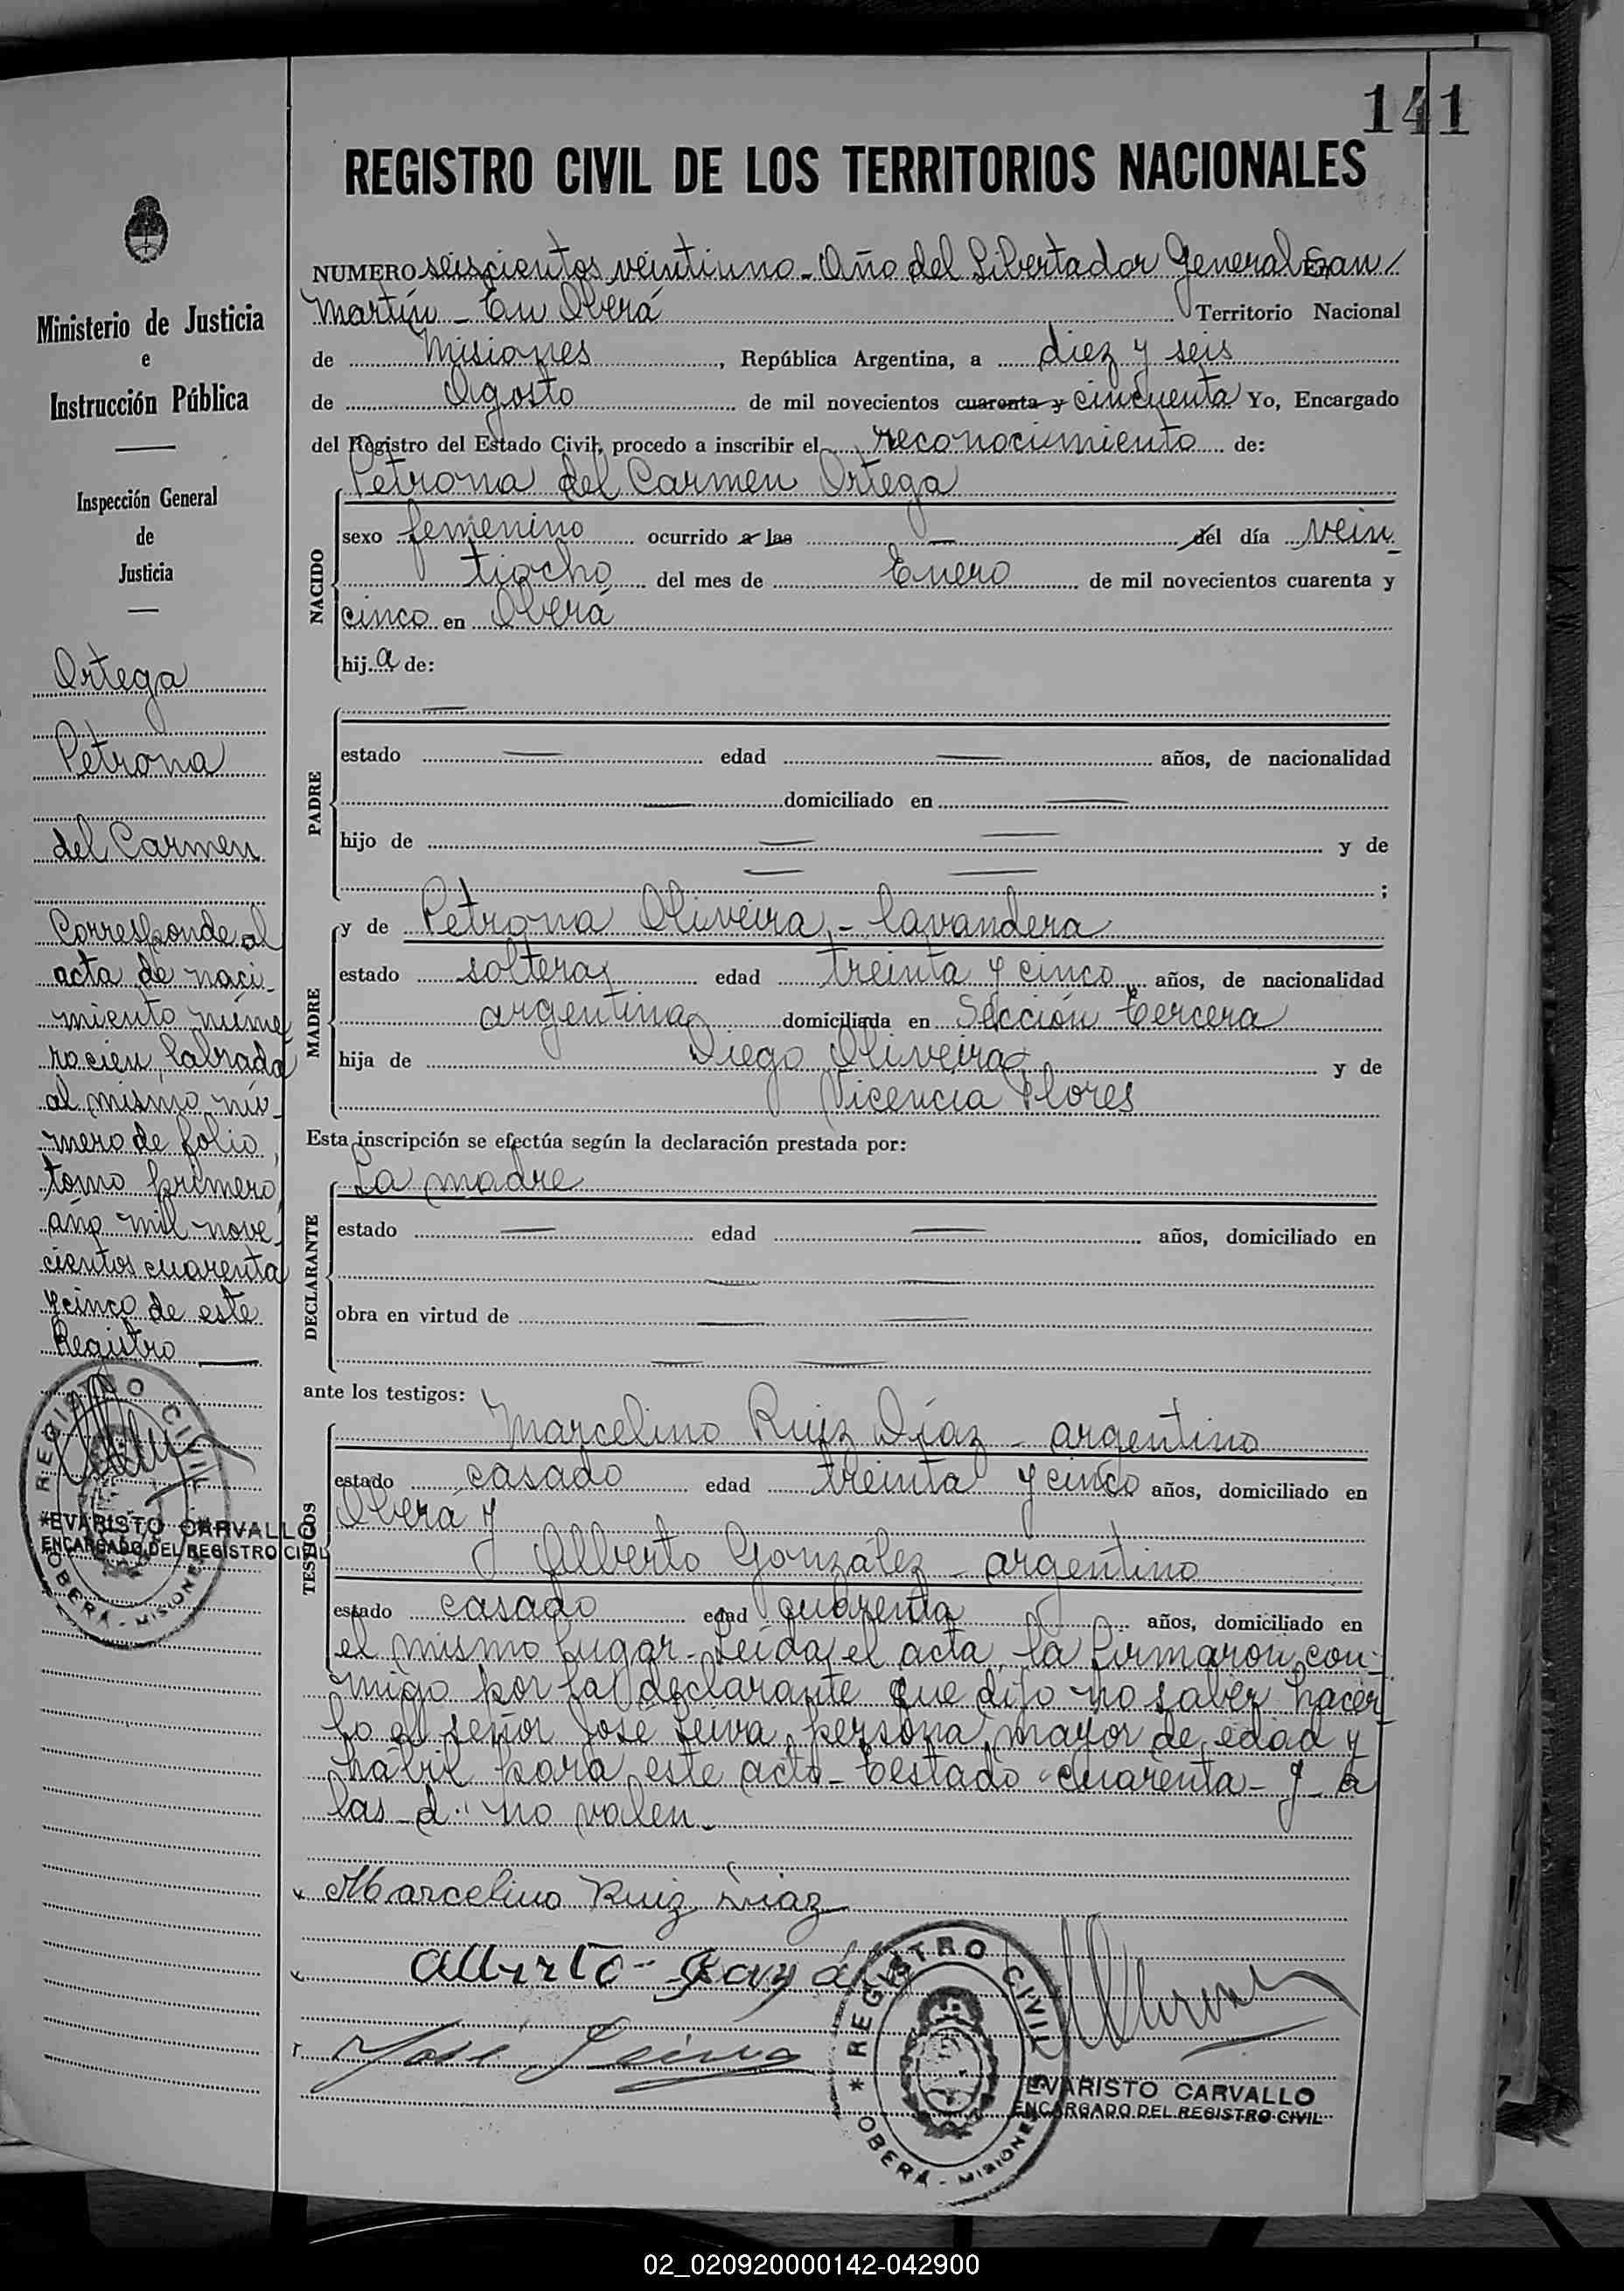 141
REGISTRO CIVIL DE LOS TERRITORIOS NACIONALES
Ministerio de Justicia
e
Instrucción Pública
Inspección General
de
Justicia
Ortega
Petrona
del Carmen
Corresponde al
acta de naci-
miento núme
ro cien, labrada
al mismo nú-
mero de folio,
tomo primero
año mil nove-
cientos cuarenta
y cinco de este
Registro
REGISTRO CIVIL
EVARISTO CARVALLO
ENCARGADO DEL REGISTRO CIVIL
OBERÁ - MISIONES
NUMERO seiscientos veintiuno - Año del Libertador General San
Martín - En Oberá Territorio Nacional
de Misiones, República Argentina, a diez y seis
de Agosto de mil novecientos cuarenta y cincuenta Yo, Encargado
del Registro del Estado Civil, procedo a inscribir el reconocimiento de:
NACIDO
Petrona del Carmen Ortega
sexo femenino ocurrido a las — del día vein-
tiocho del mes de Enero de mil novecientos cuarenta y
cinco en Oberá
hija de:
PADRE
estado — edad — años, de nacionalidad
— domiciliado en —
hijo de — y de
— ;
MADRE
y de Petrona Oliveira - lavandera
estado soltera edad treinta y cinco años, de nacionalidad
argentina domiciliada en Sección tercera
hija de Diego Oliveira y de
Vicencia Flores
Esta inscripción se efectúa según la declaración prestada por:
DECLARANTE
La madre
estado — edad — años, domiciliado en
obra en virtud de —
ante los testigos:
TESTIGOS
Marcelino Ruiz Díaz - argentino
estado casado edad treinta y cinco años, domiciliado en
Oberá y
Alberto González - argentino
estado casado edad cuarenta años, domiciliado en
el mismo lugar - Leída el acta, la firmaron con-
migo por la declarante que dijo no saber hacer-
lo el señor José Leiva, persona mayor de edad y
hábil para este acto - testado "cuarenta - y - a
las - d" no valen.
Marcelino Ruiz Diaz
Alberto Gonzál
José Leiva
REGISTRO CIVIL
OBERÁ - MISIONES
EVARISTO CARVALLO
ENCARGADO DEL REGISTRO CIVIL
02_020920000142-042900